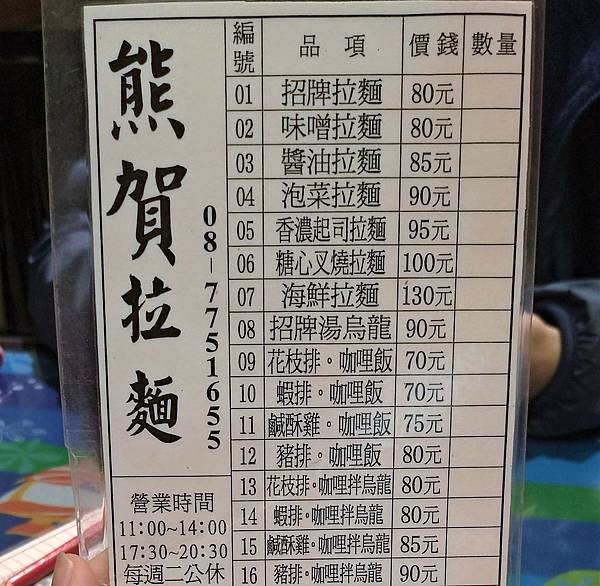 熊賀拉麵
08-7751655
營業時間
11:00~14:00
17:30~20:30
每週二公休
編號 品項 價錢 數量
01 招牌拉麵 80元
02 味噌拉麵 80元
03 醬油拉麵 85元
04 泡菜拉麵 90元
05 香濃起司拉麵 95元
06 糖心叉燒拉麵 100元
07 海鮮拉麵 130元
08 招牌湯烏龍 90元
09 花枝排。咖哩飯 70元
10 蝦排。咖哩飯 70元
11 鹹酥雞。咖哩飯 75元
12 豬排。咖哩飯 80元
13 花枝排。咖哩拌烏龍 80元
14 蝦排。咖哩拌烏龍 80元
15 鹹酥雞。咖哩拌烏龍 85元
16 豬排。咖哩拌烏龍 90元